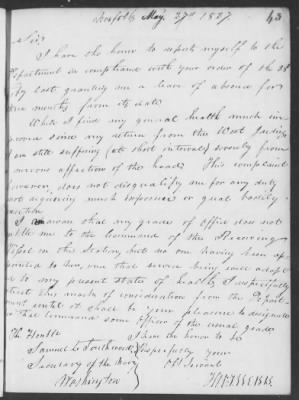 Norfolk May 27th 1827
43
Sir,
I have the honor to report myself to the
Department in compliance with your order of the 28
last granting me a leave of absence for
three months from its date
While I find my general health much im
proved since my return from the West Indies,
I am still suffering (at short intervals) severely from
nervous affection of the head. This complaint
however does not disqualify me for any duty
not requiring much exposure or great bodily
I am aware that my grade of office does not
entitle me to the command of the Receiving
Vessel on this Station, but no one having been ap
pointed to her, and that service being well adapt
ed to my present state of health, I respectfully
this mark of consideration from the Depart
ment, until it shall be your pleasure to designate
to that command some Officer of the usual grade
I have the honor to be
The Honble
Samuel L Southard Respectfully your
Secretary of the Navy Obt Servant
Washington